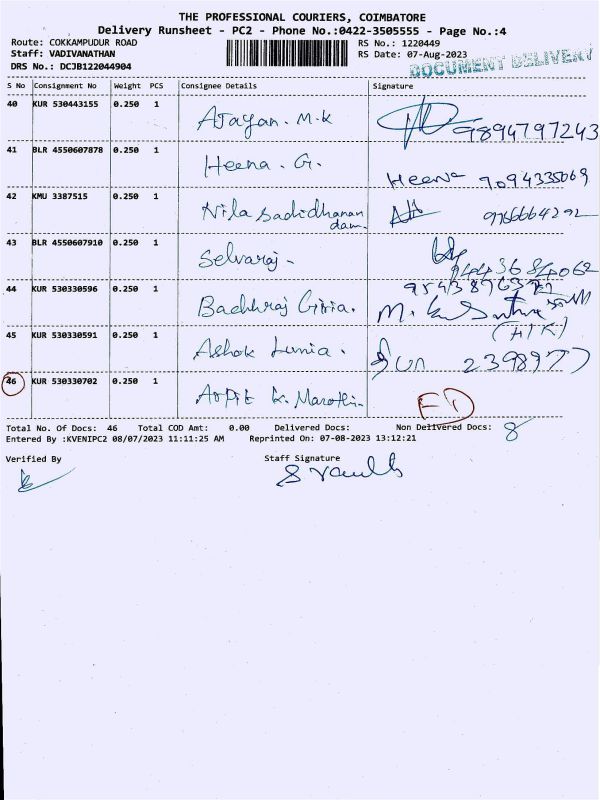 THE PROFESSIONAL COURIERS, COIMBATORE
Delivery Runsheet - PC2 - Phone No.:0422-3505555 - Page No.:4
Route: COKKAMPUDUR ROAD
Staff: VADIVANATHAN
DRS No.: DCJB122044904
RS No.: 1220449
RS Date: 07-Aug-2023
DOCUMENT DELIVERY
S No Consignment No Weight PCS Consignee Details Signature
40 KUR 530443155 0.250 1 Ajayan. M.K 9894797243
41 BLR 4550607878 0.250 1 Heena. G. Heena 9094335069
42 KMU 3387515 0.250 1 Nila Sachidhanan
dam.
43 BLR 4550607910 0.250 1 Selvaraj - 9443684062
44 KUR 530330596 0.250 1 Bachhraj Giria. M.
(H/K)
45 KUR 530330591 0.250 1 Ashok Lunia. 2398977
46 KUR 530330702 0.250 1 Arpit K. Marothi.
Total No. Of Docs: 46 Total COD Amt: 0.00 Delivered Docs: Non Delivered Docs: 8
Entered By :KVENIPC2 08/07/2023 11:11:25 AM Reprinted On: 07-08-2023 13:12:21
Verified By Staff Signature